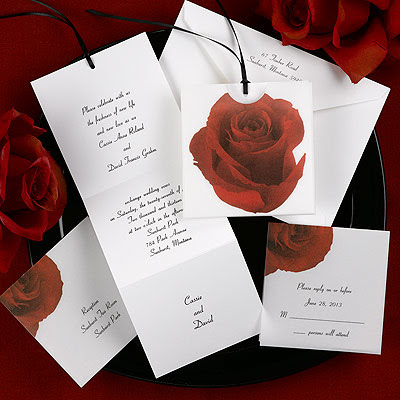 Please celebrate with us
the freshness of new life
and new love as we
Carrie Anne Roland
and
David Francis Graham
exchange wedding vows
on Saturday, the twenty-seventh of
Two thousand thirteen
at two o'clock in the afternoon
Sunburst Park
788 Park Avenue
Sunburst, Montana
Cassie
and
David
67 Timber Road
Sunburst, Montana
Reception
Sunburst Tea Room
Sunburst Park
Please reply on or before
June 28, 2013
M
persons will attend